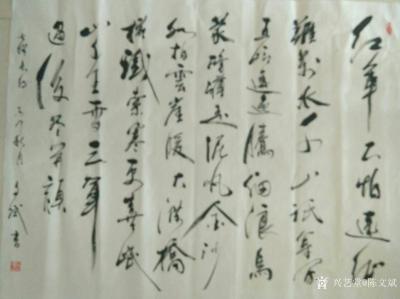 红军不怕远征
難万水千山只等闲
五岭逶迤腾细浪乌
蒙磅礴走泥丸金沙
水拍雲崖暖大渡橋
横鐵索寒更喜岷
山千里雪三军
过后尽开颜
秋月 文斌书
兴艺堂@陈文斌